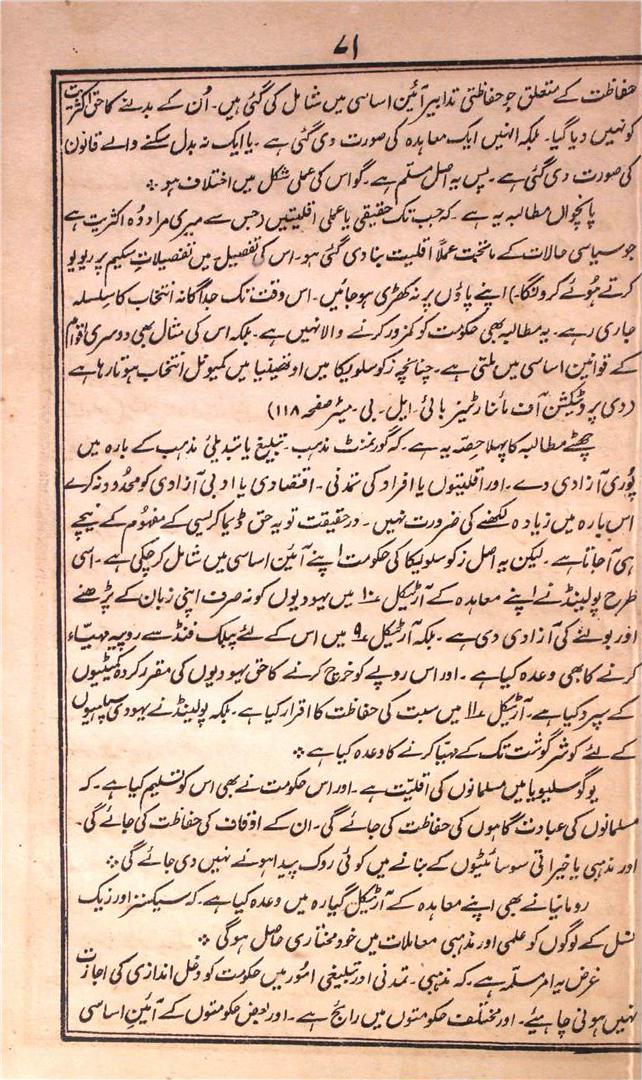 ۷۱
حفاظت کے متعلق جو حفاظتی تدابیر آئین اساسی میں شامل کی گئی ہیں۔ اُن کے بدلنے کا حق اکثریت
کو نہیں دیا گیا۔ بلکہ انہیں ایک معاہدہ کی صورت دی گئی ہے۔ یا ایک نہ بدل سکنے والے قانون
کی صورت دی گئی ہے۔ پس یہ اصل مسلّم ہے۔ گو اس کی عملی شکل میں اختلاف ہو ؞
پانچواں مطالبہ یہ ہے۔ کہ جب تک حقیقی یا عملی اقلیتیں (جس سے میری مراد وُہ اکثریت ہے
جو سیاسی حالات کے ماتحت عملاً اقلیت بنا دی گئی ہو۔ اس کی تفصیل میں تفصیلاتِ سکیم پر ریویو
کرتے ہُوئے کرونگا۔) اپنے پاؤں پر نہ کھڑی ہو جائیں۔ اس وقت تک جداگانہ انتخاب کا سلسلہ
جاری رہے۔ یہ مطالبہ بھی حکومت کو کمزور کرنے والا نہیں ہے۔ بلکہ اس کی مثال بھی دوسری اقوام
کے قوانین اساسی میں ملتی ہے۔ چنانچہ زکوسلویکا میں اوتھینیا میں کمیونل انتخاب ہوتا رہا ہے
(دی پروٹیکشن آف مائنارٹیز بائی۔ ایل۔ بی۔ میئر صفحہ ۱۱۸)
چھٹے مطالبہ کا پہلا حصّہ یہ ہے۔ کہ گورنمنٹ مذہب۔ تبلیغ یا تبدیلیٔ مذہب کے بارہ میں
پُوری آزادی دے۔ اور اقلیتوں یا افراد کی تمدنی۔ اقتصادی یا ادبی آزادی کو محدُود نہ کرے
اس بارہ میں زیادہ لکھنے کی ضرورت نہیں۔ درحقیقت تو یہ حق ڈیماکریسی کے مفہُوم کے نیچے
ہی آ جاتا ہے۔ لیکن یہ اصل زکوسلویکا کی حکومت اپنے آئین اساسی میں شامل کر چکی ہے۔ اسی
طرح پولینڈ نے اپنے معاہدہ کے آرٹیکل ۱۰ میں یہودیوں کو نہ صرف اپنی زبان کے پڑھنے
اور بولنے کی آزادی دی ہے۔ بلکہ آرٹیکل ۹ میں اس کے لئے پبلک فنڈ سے روپیہ مہیّاء
کرنے کا بھی وعدہ کیا ہے۔ اور اس روپے کو خرچ کرنے کا حق یہودیوں کی مقرر کردہ کمیٹیوں
کے سپرد کیا ہے۔ آرٹیکل ۱۱ میں سبت کی حفاظت کا اقرار کیا ہے۔ بلکہ پولینڈ نے یہودی سپاہیوں
کے لئے کوشر گوشت تک کے مہیّا کرنے کا وعدہ کیا ہے ؞
یوگوسلیویا میں مسلمانوں کی اقلیّت ہے۔ اور اس حکومت نے بھی اس کو تسلیم کیا ہے۔ کہ
مسلمانوں کی عبادت گاہوں کی حفاظت کی جائے گی۔ ان کے اوقاف کی حفاظت کی جائے گی۔
اور مذہبی یا خیراتی سوسائیٹیوں کے بنانے میں کوئی روک پیدا ہونے نہیں دی جائے گی ؞
رومانیا نے بھی اپنے معاہدہ کے آرٹیکل گیارہ میں وعدہ کیا ہے۔ کہ سیکنز اور زیک
نسل کے لوگوں کو علمی اور مذہبی معاملات میں خود مختاری حاصل ہوگی ؞
غرض یہ امر مسلّمہ ہے۔ کہ مذہبی۔ تمدنی اور تبلیغی امُور میں حکومت کو دخل اندازی کی اجازت
نہیں ہونی چاہیئے۔ اور مختلف حکومتوں میں رائج ہے۔ اور بعض حکومتوں کے آئینِ اساسی